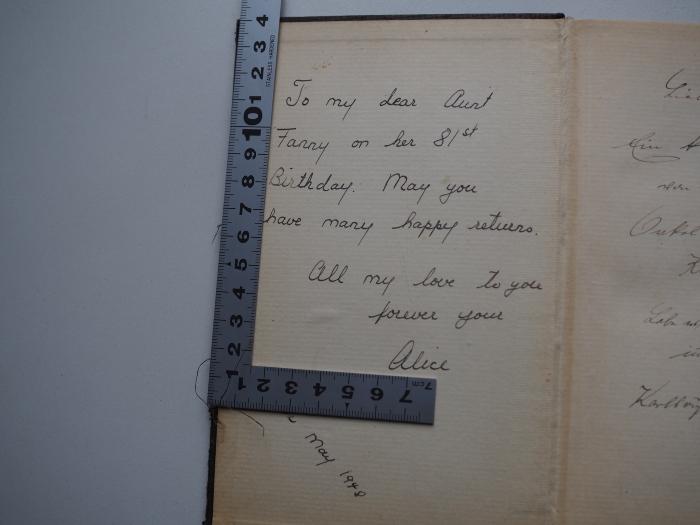 To my dear Aunt
Fanny on her 81st
Birthday. May you
have many happy returns.
All my love to you
forever your
Alice
May 1948
1 2 3 4 5 6 7 8 9 10 1 2 3 4
STAINLESS HARDENED
1 2 3 4 5 6 7 7cm
Ein
Onkel